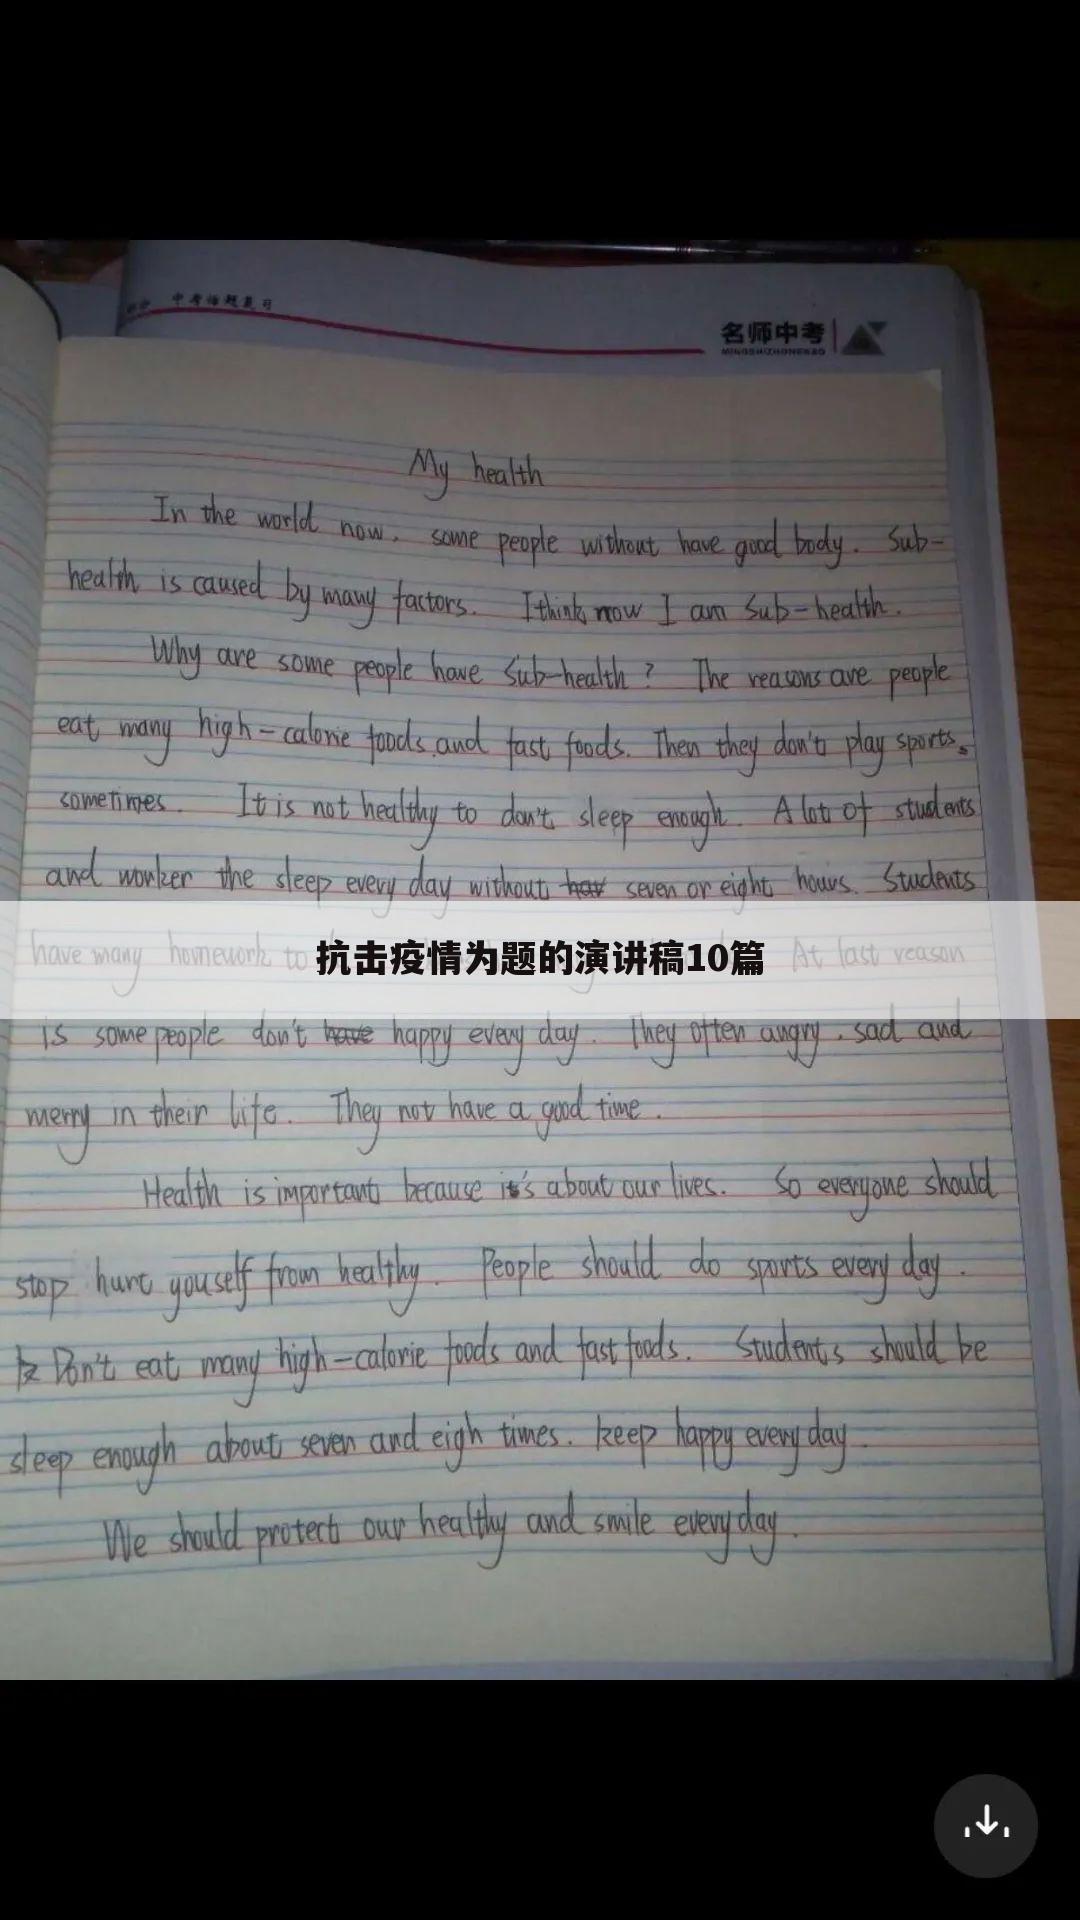 中考话题复习
名师中考
MINGSHIZHONGKAO
My health
In the world now, some people without have good body. Sub-
health is caused by many factors. I think now I am sub-health.
Why are some people have sub-health? The reasons are people
eat many high-calorie foods and fast foods. Then they don't play sports
sometimes. It is not healthy to don't sleep enough. A lot of students
and worker the sleep every day without seven or eight hours. Students
have many homework to
抗击疫情为题的演讲稿10篇
At last reason
is some people don't have happy every day. They often angry, sad and
merry in their life. They not have a good time.
Health is important because it's about our lives. So everyone should
stop hurt youself from healthy. People should do sports every day.
Don't eat many high-calorie foods and fast foods. Students should be
sleep enough about seven and eigh times. keep happy every day.
We should protect our healthy and smile every day.